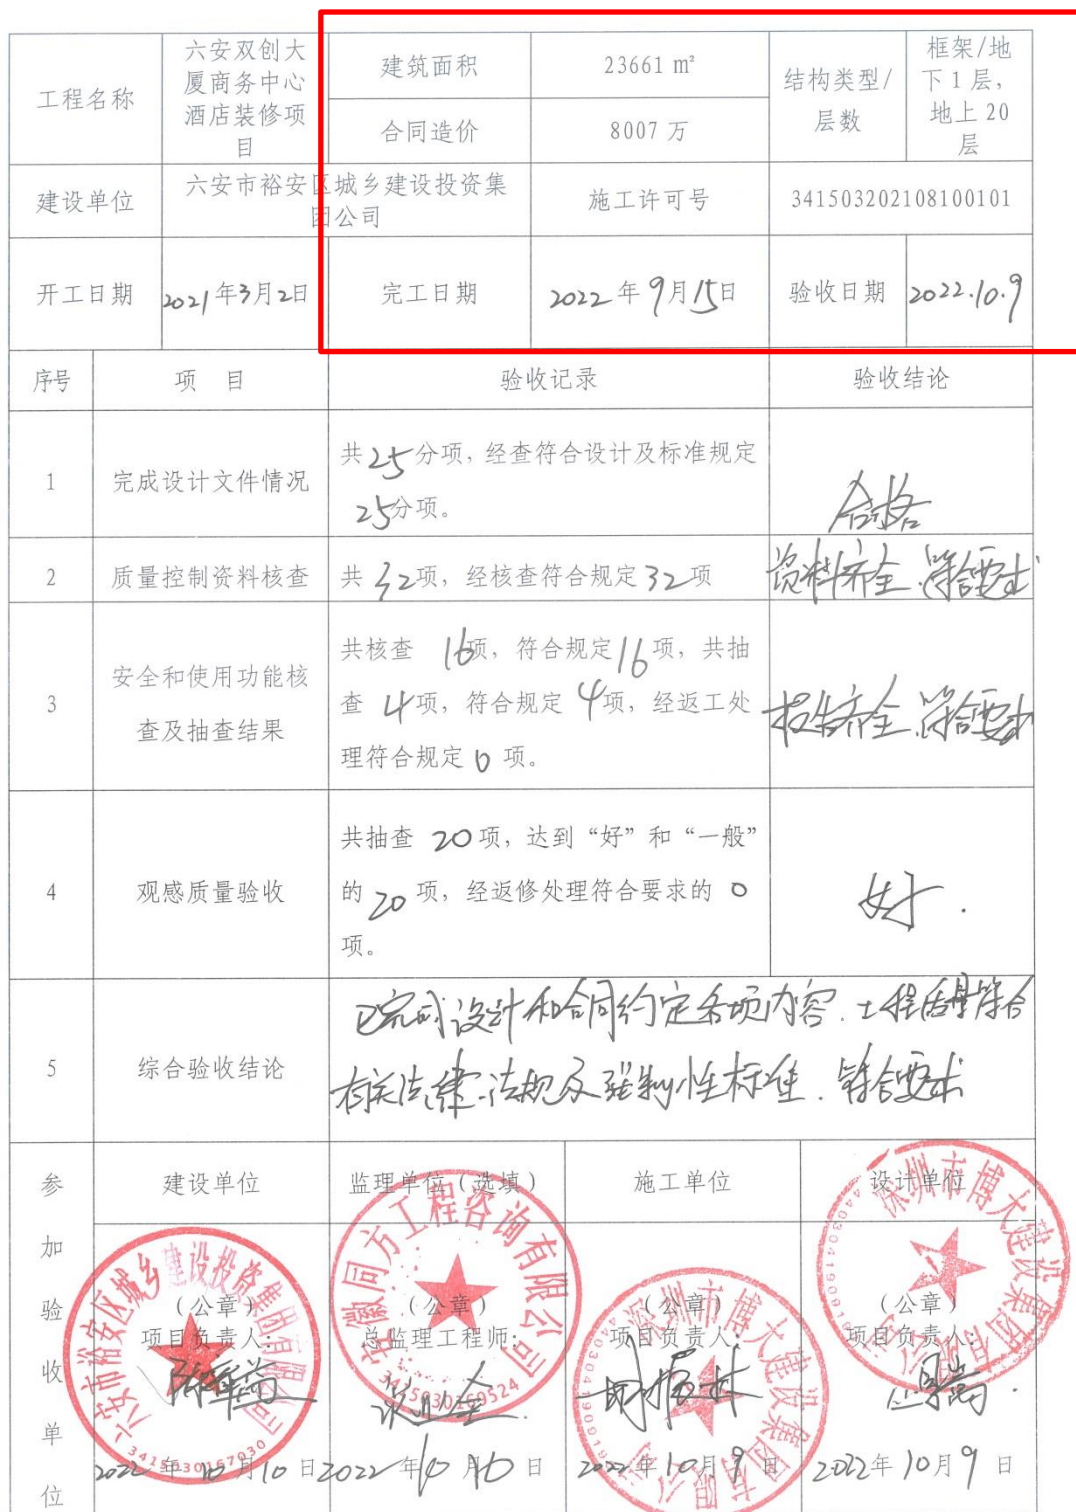 工程名称
六安双创大
厦商务中心
酒店装修项
目
建筑面积
23661 m²
结构类型/
层数
框架/地
下1层，
地上20
层
合同造价
8007 万
建设单位
六安市裕安区城乡建设投资集
团公司
施工许可号
341503202108100101
开工日期
2021年3月2日
完工日期
2022年9月15日
验收日期
2022.10.9
序号
项 目
验收记录
验收结论
1
完成设计文件情况
共25分项，经查符合设计及标准规定
25分项。
合格
2
质量控制资料核查
共32项，经核查符合规定32项
资料齐全、符合要求
3
安全和使用功能核
查及抽查结果
共核查 16项，符合规定16项，共抽
查 4项，符合规定 4项，经返工处
理符合规定0项。
报告齐全、符合要求
4
观感质量验收
共抽查 20项，达到“好”和“一般”
的20项，经返修处理符合要求的 0
项。
好.
5
综合验收结论
已完成设计和合同约定各项内容.工程质量符合
有关法律、法规及强制性标准.符合要求
参
加
验
收
单
位
建设单位
监理单位（选填）
施工单位
设计单位
（公章）
项目负责人：
（公章）
总监理工程师：
（公章）
项目负责人：
（公章）
项目负责人：
2022年10月10日
2022年10月10日
2022年10月9日
2022年10月9日
六安市裕安区城乡建设投资集团有限公司
3415030167030
安徽同方工程咨询有限公司
3415030160524
深圳市博大建设集团有限公司
深圳市博大建设集团有限公司